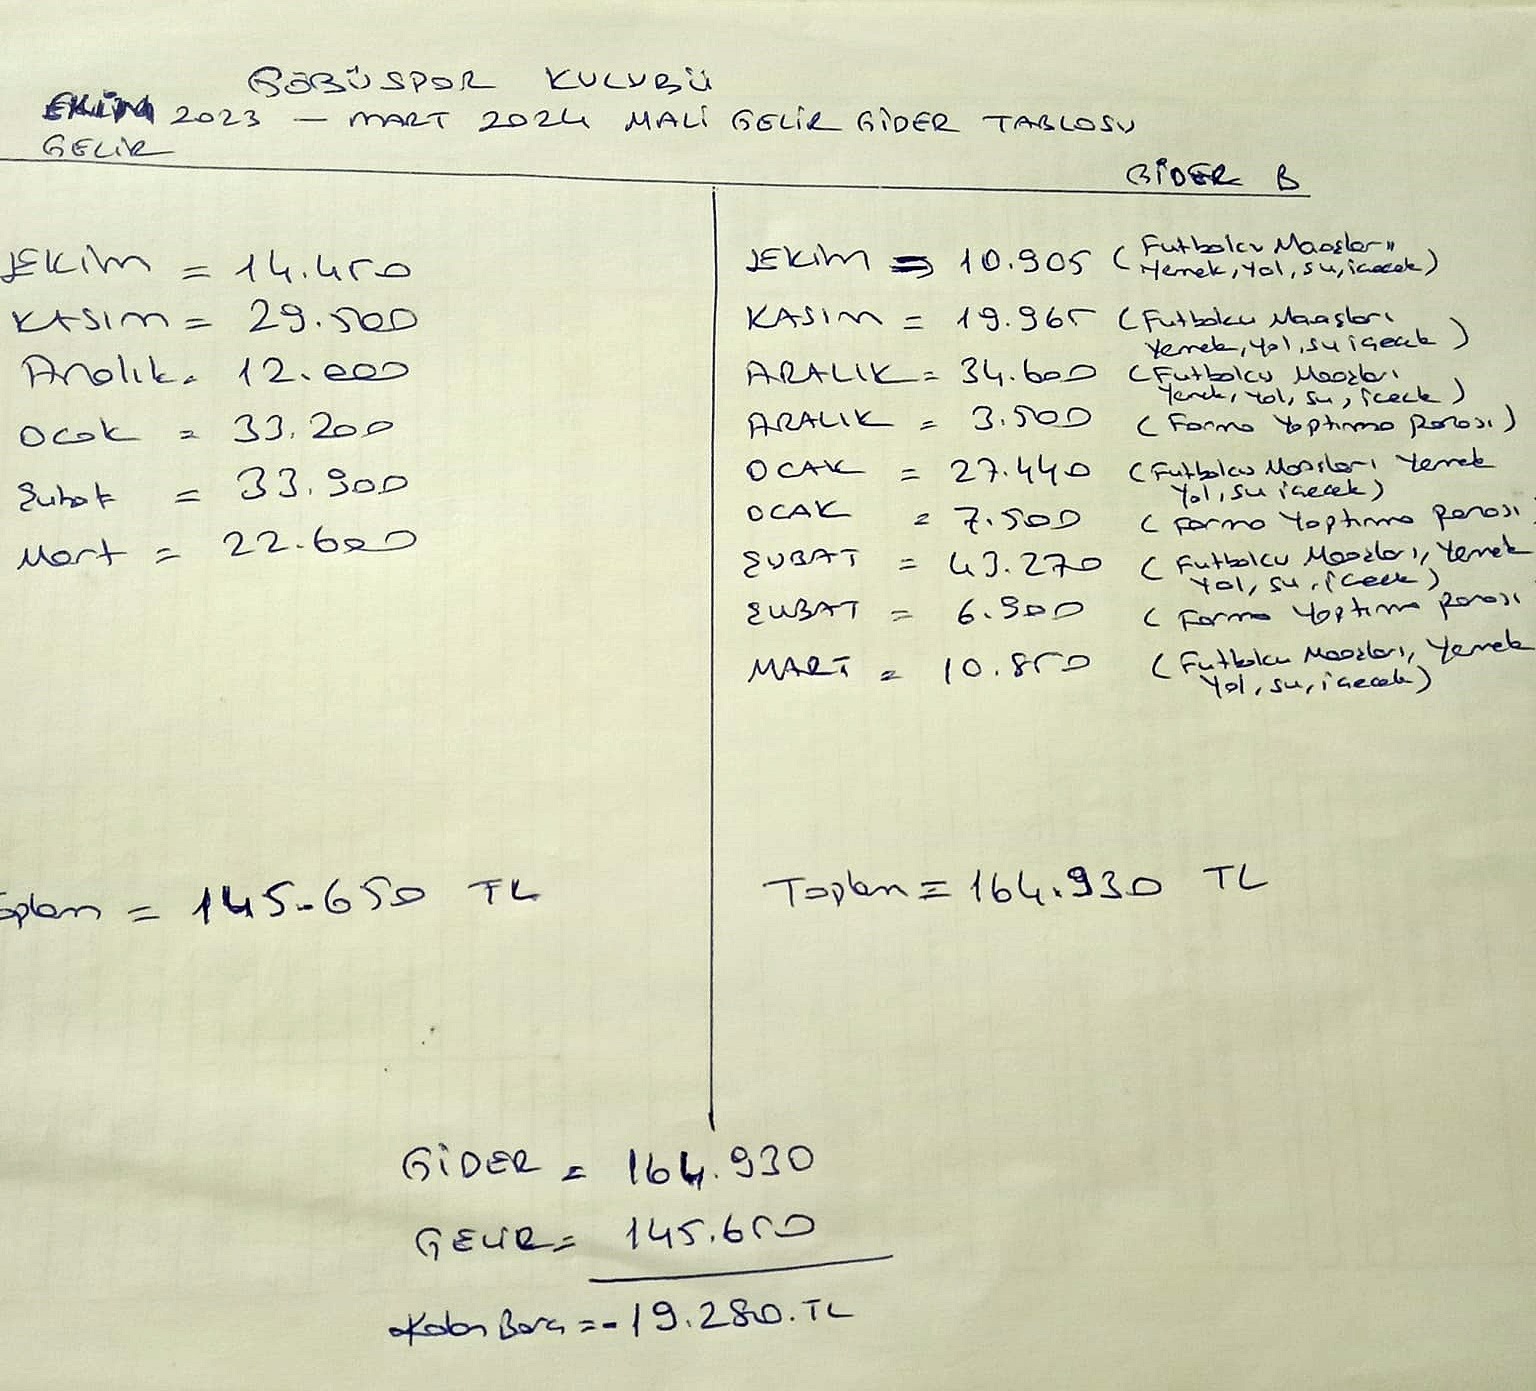 GÖBÜSPOR KULUBÜ
EKİM 2023 – MART 2024 MALİ GELİR GİDER TABLOSU
GELİR
GİDER B
EKİM = 14.450
KASIM = 29.500
Aralık = 12.000
Ocak = 33.200
Şubat = 33.900
Mart = 22.600
Toplam = 145.650 TL
EKİM = 10.905 (Futbolcu Maaşları
Yemek, Yol, su, içecek)
KASIM = 19.965 (Futbolcu Maaşları
Yemek, Yol, su içecek)
ARALIK = 34.600 (Futbolcu Maaşları
Yemek, Yol, su, içecek)
ARALIK = 3.500 (Forma Yaptırma Parası)
OCAK = 27.440 (Futbolcu Maaşları Yemek
Yol, su içecek)
OCAK = 7.500 (Forma Yaptırma Parası
ŞUBAT = 43.270 (Futbolcu Maaşları, Yemek
Yol, su, içecek)
ŞUBAT = 6.900 (Forma Yaptırma Parası
MART = 10.850 (Futbolcu Maaşları, Yemek
Yol, su, içecek)
Toplam = 164.930 TL
GİDER = 164.930
GELİR = 145.650
Kalan Borç = -19.280.TL